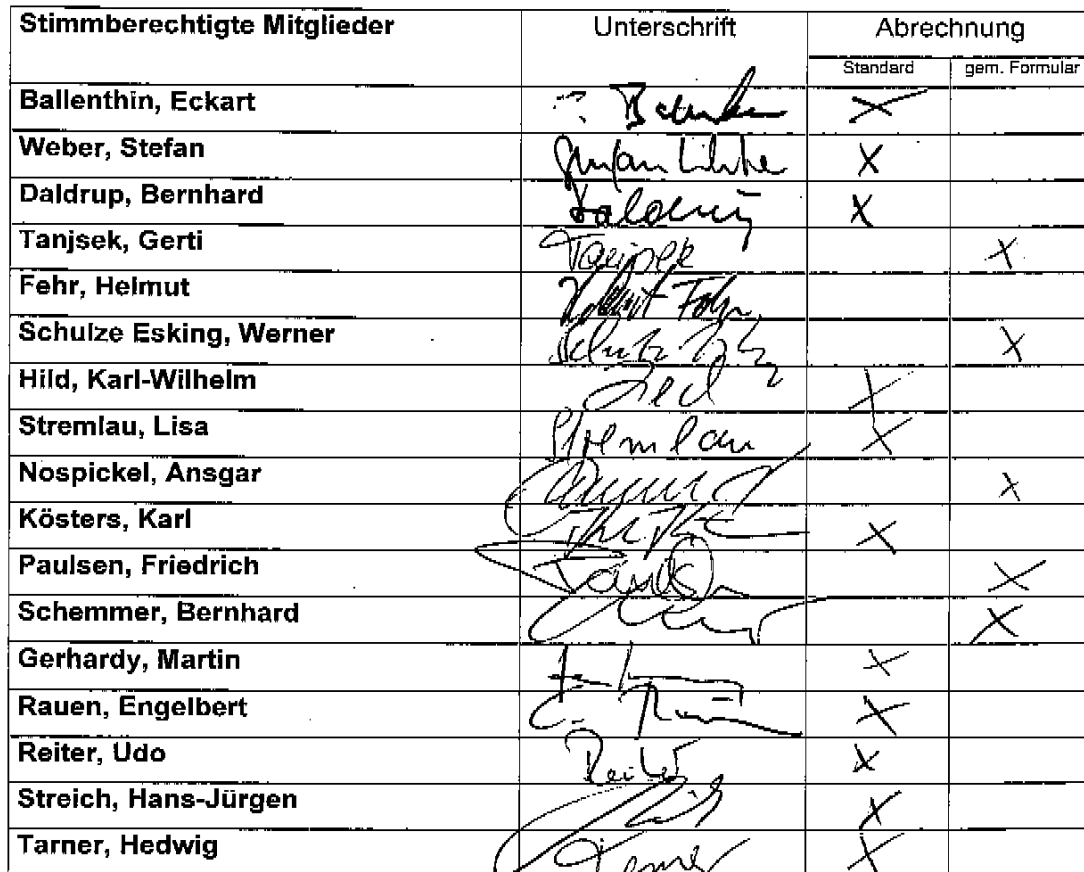 Stimmberechtigte Mitglieder Unterschrift Abrechnung
Standard gem. Formular
Ballenthin, Eckart X
Weber, Stefan X
Daldrup, Bernhard Daldrup X
Tanjsek, Gerti Tanjsek X
Fehr, Helmut Helmut Fehr
Schulze Esking, Werner X
Hild, Karl-Wilhelm Hild X
Stremlau, Lisa Stremlau X
Nospickel, Ansgar X
Kösters, Karl X
Paulsen, Friedrich X
Schemmer, Bernhard X
Gerhardy, Martin X
Rauen, Engelbert X
Reiter, Udo Reiter X
Streich, Hans-Jürgen X
Tarner, Hedwig Tarner X